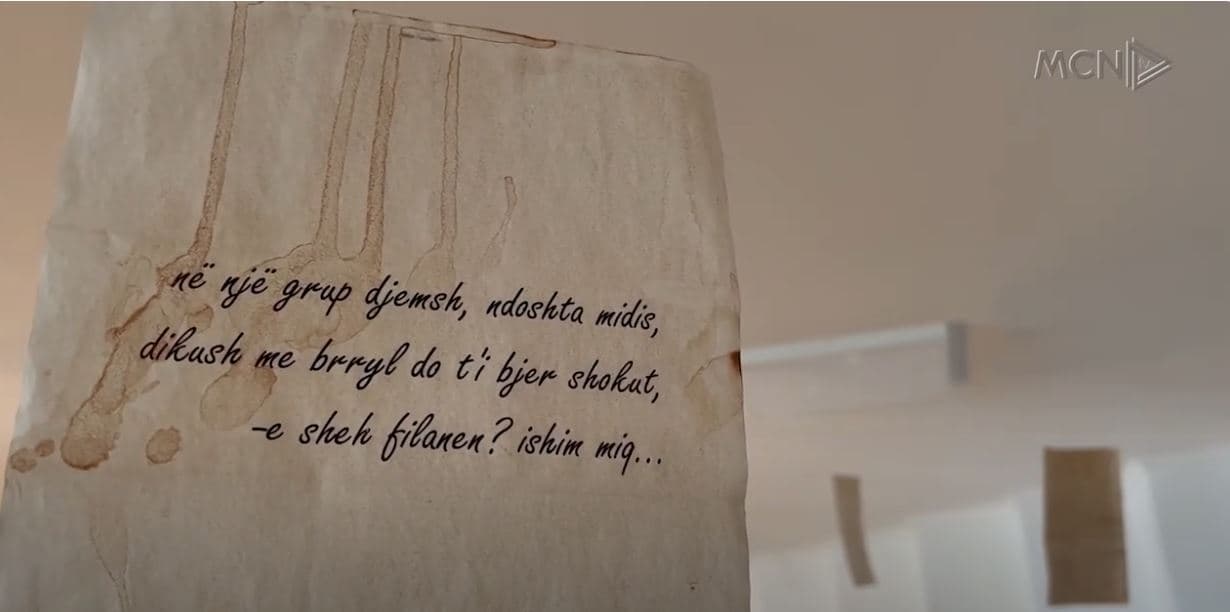 MCN TV
në një grup djemsh, ndoshta midis,
dikush me brryl do t'i bjer shokut,
-e sheh filanen? ishim miq...